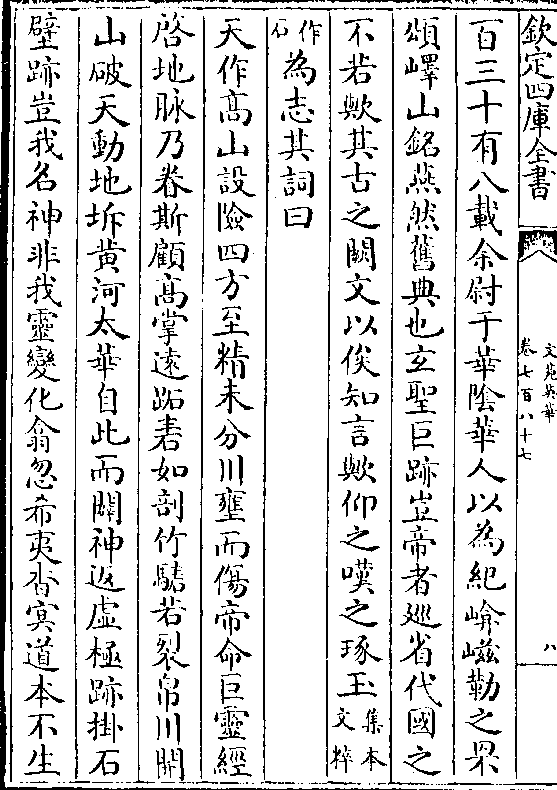 欽定四庫全書
文苑英華
卷七百八十七
八
百三十有八載余尉于華隂華人以為紀崤嶷勒之罘
頌嶧山銘燕然舊典也玄聖巨跡豈帝者廵省伐國之
不若歟其古之闕文以俟知言歟仰之嘆之琢玉集本文粹
作石為志其詞曰
天作髙山設險四方至精未分川壅而傷帝命巨靈經
啓地脉乃眷斯顧髙掌逺跖砉如剖竹騞若裂帛川開
山破天動地坼黄河太華自此而闢神返虛極跡掛石
壁跡豈我名神非我靈變化翕忽希夷杳㝠道本不生